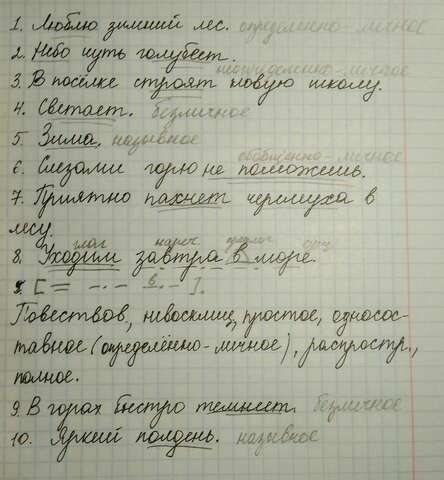 1. Люблю зимний лес. определенно-личное
2. Небо чуть голубеет.
неопределенно-личное
3. В посёлке строят новую школу.
4. Светает. безличное
5. Зима, назывное
обобщённо-личное
6. Слезами горю не поможешь.
7. Приятно пахнет черёмуха в
лесу.
глаг нареч предлог сущ
8. Уходим завтра в море.
[= -.- в.- ].
Повествов, невосклиц, простое, односос-
тавное (определённо-личное), распростр.,
полное.
9. В горах быстро темнеет. безличное
10. Яркий полдень. назывное